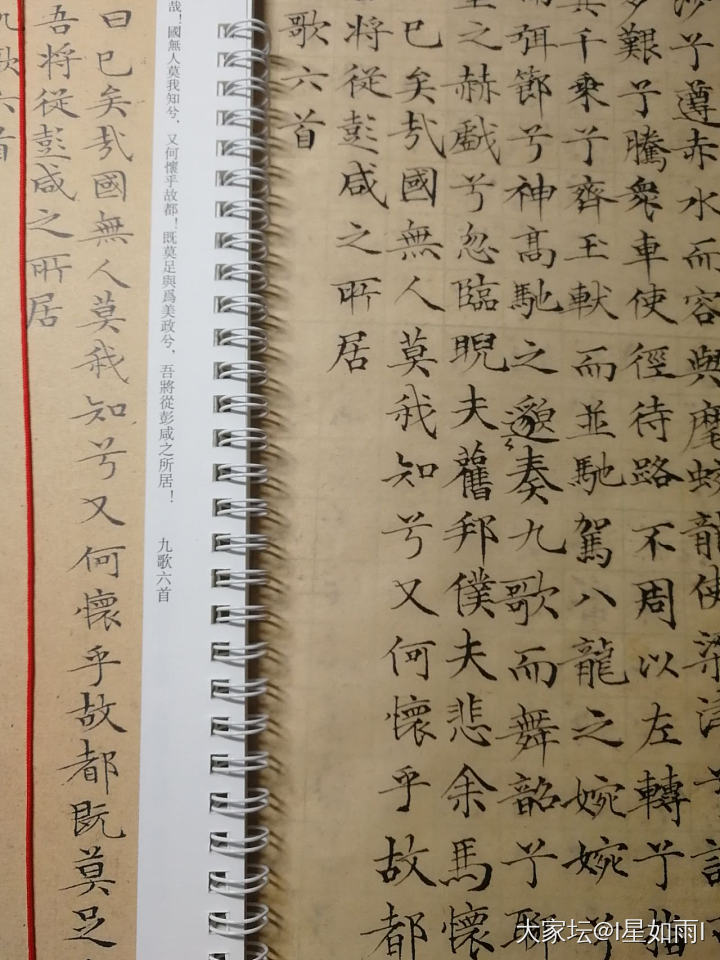 沙兮遵赤水而容與麾蛟龍使梁津兮詔
多艱兮騰衆車使徑待路不周以左轉兮指
其千乘兮齊玉軑而並馳駕八龍之婉婉兮
而弭節兮神高馳之邈〻奏九歌而舞韶兮聊
皇之赫戲兮忽臨睨夫舊邦僕夫悲余馬懷
已矣哉國無人莫我知兮又何懷乎故都
將從彭咸之所居
歌六首
哉！國無人莫我知兮，又何懷乎故都！既莫足與爲美政兮，吾將從彭咸之所居！ 九歌六首
曰已矣哉國無人莫我知兮又何懷乎故都既莫足
吾將從彭咸之所居
九歌六首
大家坛@I星如雨I